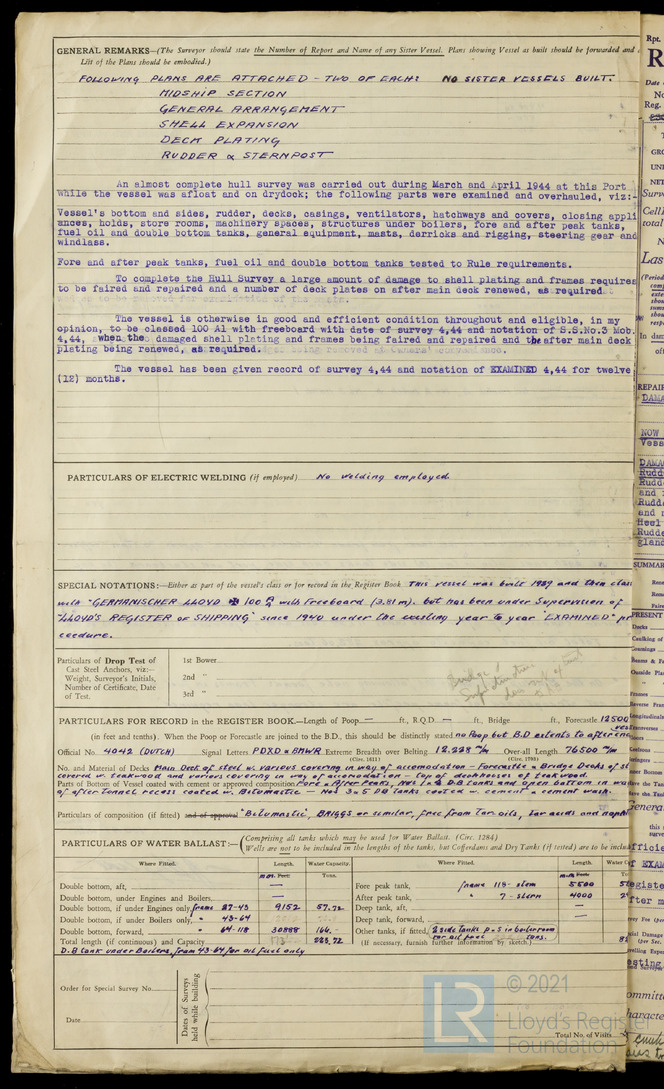 GENERAL REMARKS—(The Surveyor should state the Number of Report and Name of any Sister Vessel. Plans showing Vessel as built should be forwarded and
List of the Plans should be embodied.)
FOLLOWING PLANS ARE ATTACHED - TWO OF EACH: NO SISTER VESSELS BUILT.
MIDSHIP SECTION
GENERAL ARRANGEMENT
SHELL EXPANSION
DECK PLATING
RUDDER & STERNPOST
An almost complete hull survey was carried out during March and April 1944 at this Port
while the vessel was afloat and on drydock; the following parts were examined and overhauled, viz:-
Vessel's bottom and sides, rudder, decks, casings, ventilators, hatchways and covers, closing appli
ances, holds, store rooms, machinery spaces, structures under boilers, fore and after peak tanks,
fuel oil and double bottom tanks, general equipment, masts, derricks and rigging, steering gear and
windlass.
Fore and after peak tanks, fuel oil and double bottom tanks tested to Rule requirements.
To complete the Hull Survey a large amount of damage to shell plating and frames requires
to be faired and repaired and a number of deck plates on after main deck renewed, as required
The vessel is otherwise in good and efficient condition throughout and eligible, in my
opinion, to be classed 100 A1 with freeboard with date of survey 4,44 and notation of S.S.No.3 Mob.
4,44, when the damaged shell plating and frames being faired and repaired and the after main deck
plating being renewed, as required.
The vessel has been given record of survey 4,44 and notation of EXAMINED 4,44 for twelve
(12) months.
PARTICULARS OF ELECTRIC WELDING (if employed) No welding employed.
SPECIAL NOTATIONS:—Either as part of the vessel's class or for record in the Register Book This vessel was built 1939 and then class
with "GERMANISCHER LLOYD ✠ 100 A with Freeboard (3.81 m). but has been under Supervision of
"LLOYD'S REGISTER OF SHIPPING" since 1940 under the existing year to year "EXAMINED" pr
ceedure.
Particulars of Drop Test of
Cast Steel Anchors, viz:—
Weight, Surveyor's Initials,
Number of Certificate, Date
of Test.
1st Bower
2nd "
3rd "
PARTICULARS FOR RECORD in the REGISTER BOOK.—Length of Poop — ft., R.Q.D. — ft., Bridge ft., Forecastle 12500
(in feet and tenths). When the Poop or Forecastle are joined to the B.D., this should be distinctly stated no Poop but B.D extents to after end
Official No. 4042 (DUTCH) Signal Letters PDXD & BMWR Extreme Breadth over Belting 12.228 m/m Over-all Length 76500 m/m
(Circ. 1611) (Circ. 1703)
No. and Material of Decks Main Deck of steel w. various covering in way of accomodation - Forecastle & Bridge Decks of st
covered w. teakwood and various covering in way of accomodation - top of deckhouses of teakwood.
Parts of Bottom of Vessel coated with cement or approved composition Fore & After Peaks, Nos 1 & 2 D.B tanks and open bottom in wa
of after tunnel recess coated w. Bitumastic - Nos 3 & 5 DB Tanks coated w. cement & cement wash.
Particulars of composition (if fitted) and of approval "Bitumastic", BRIGGS or similar, free from tar oils, tar acids and naphth
PARTICULARS OF WATER BALLAST:—(Comprising all tanks which may be used for Water Ballast. (Circ. 1284)
Wells are not to be included in the lengths of the tanks, but Cofferdams and Dry Tanks (if tested) are to be inclu
Where Fitted. Length. Water Capacity. Where Fitted. Length. Water C
Tons.
Double bottom, aft, —
Double bottom, under Engines and Boilers, —
Double bottom, if under Engines only, frame 27-43 9152 57.72
Double bottom, if under Boilers only, " 43-64
Double bottom, forward, " 64-118 30888 166.-
Total length (if continuous) and Capacity 223,72
D.B tank under Boilers, fram 43-64 for oil fuel only
Fore peak tank, frame 118 - stem 5500
After peak tank, " 7 - stern 4000
Deep tank, aft, —
Deep tank, forward, —
Other tanks, if fitted, 2 side tanks p & s in boilerroom
for oil fuel tons.
(If necessary, furnish further information by sketch.)
Order for Special Survey No.
Date
Dates of Surveys
held while building
Total No. of Visits
© 2021
LR
Lloyd's Register
Foundation